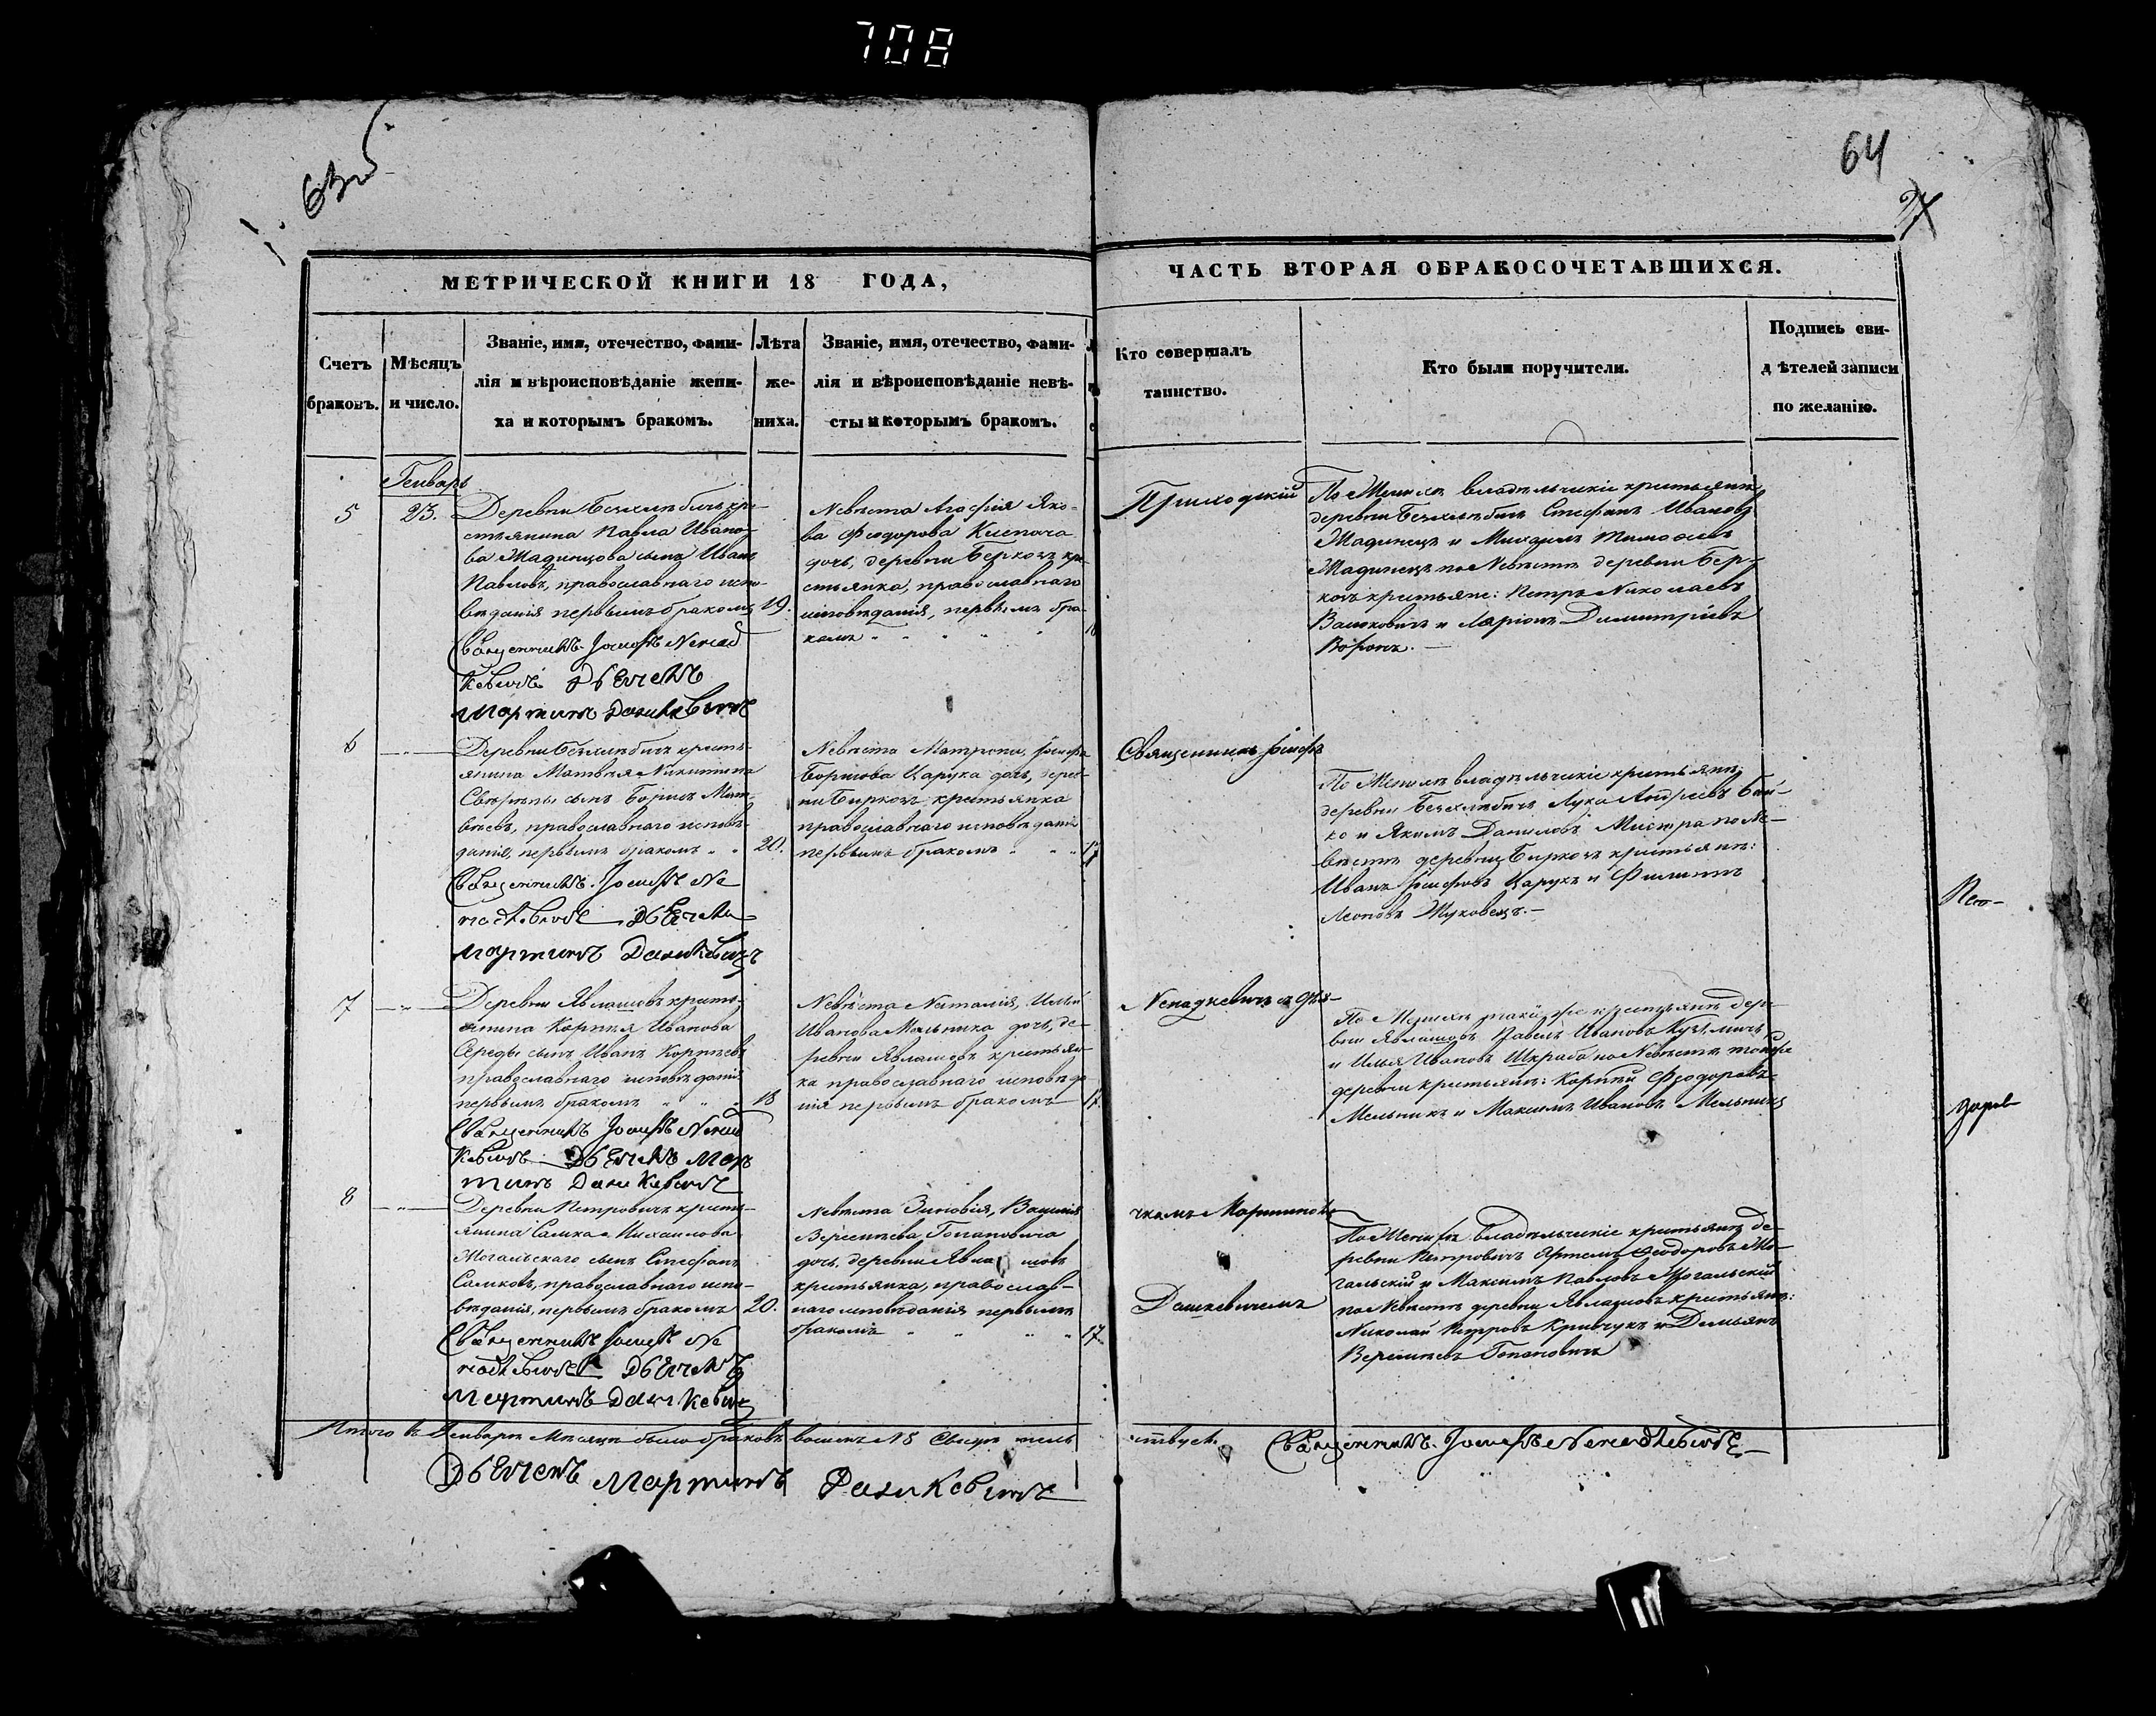 708
63 об
64
МЕТРИЧЕСКОЙ КНИГИ 18 ГОДА,
ЧАСТЬ ВТОРАЯ О БРАКОСОЧЕТАВШИХСЯ.
Счетъ
браковъ.
Мѣсяцъ
и число.
Званіе, имя, отечество, фами-
лія и вѣроисповѣданіе жени-
ха и которымъ бракомъ.
Лѣта
же-
ниха.
Званіе, имя, отечество, фами-
лія и вѣроисповѣданіе невѣ-
сты и которымъ бракомъ.
Кто совершалъ
таинство.
Кто были поручители.
Подпись сви-
дѣтелей записи
по желанію.
Генварь
5
23.
Деревни Безхлѣбичъ кре-
стьянина Павла Ивано-
ва сынъ Иванъ
Павловъ, православнаго испо-
вѣданія первымъ бракомъ
19.
Священникъ Іосифъ Непад
кевичъ Дьячекъ
Мартинъ Дашкевичъ
Невѣста Агафія Яко-
ва Феодорова
дочь, деревни Беркозъ кре-
стьянка, православнаго
исповѣданія, первымъ бра-
комъ
Приходскій
По Женихѣ владѣльческіе крестьяне
деревни Безхлѣбичъ Стефанъ Ивановъ
Жадинецъ и Михаилъ Тимофеевъ
Жадинецъ по Невѣстѣ деревни Бер-
козъ крестьяне: Петръ Николаевъ
и Ларіонъ Димитріевъ
Воронъ.
6
Деревни Безхлѣбичъ кресть-
янина Матвѣя Никитина
сынъ Борисъ Мат-
вѣевъ, православнаго исповѣ-
данія, первымъ бракомъ
20.
Священникъ Іосифъ Не
падкевичъ Дьячекъ
Мартинъ Дашкевичъ
Невѣста Матрона, Іосифа
Борисова Царука дочь, дерев-
ни Биркозъ крестьянка
православнаго исповѣданія
первымъ бракомъ
17
Священникъ Іосифъ
По Женихѣ владѣльческіе крестьяне:
деревни Безхлѣбичъ Лука Андреевъ
ко и Якимъ Даниловъ по Не-
вѣстѣ деревни Биркозъ крестьяне:
Иванъ Іосифовъ Царукъ и Филиппъ
Леоновъ Жуковецъ.
7
Деревни Явлашовъ кресть-
янина Корнѣя Иванова
Середы сынъ Иванъ Корнѣевъ
православнаго исповѣданія
первымъ бракомъ
18
Священникъ Іосифъ Непад
кевичъ Дьячекъ Мар
тинъ Дашкевичъ
Невѣста Наталія, Ильи
Иванова Мельника дочь, де-
ревни Явлашовъ крестьян-
ка православнаго исповѣда
нія первымъ бракомъ
17.
Непадкевичъ съ Дья-
По Женихѣ такъ же крестьяне дере-
вни Явлашовъ Павелъ Ивановъ
и Илья Ивановъ Шкраба по Невѣстѣ той же
деревни крестьяне: Корнѣй Феодоровъ
Мельникъ и Максимъ Ивановъ Мельникъ
8
Деревни Петровичъ кресть-
янина Самка Михаилова
Могальскаго сынъ Стефанъ
Самковъ, православнаго испо-
вѣданія, первымъ бракомъ
20.
Священникъ Іосифъ Не
падкевичъ Дьячекъ
Мартинъ Дашкевичъ
Невѣста Зиновія,
Гопановича
дочь, деревни Явлашовъ
крестьянка, православ-
наго исповѣданія первымъ
бракомъ
17.
чкомъ Мартиномъ
Дашкевичемъ
По Женихѣ владѣльческіе крестьяне де-
ревни Петровичъ Артемъ Феодоровъ Мо-
гальскій и Максимъ Павловъ Могальскій
по Невѣстѣ деревни Явлашовъ крестьяне:
Николай Петровъ Кравчукъ и Демьянъ
Гопановичъ
Итого въ Генварѣ Мѣсяцѣ было браковъ восемь № 8 Свидѣтель
ствуетъ. Священникъ Іосифъ Непадкевичъ
Дьячекъ Мартинъ Дашкевичъ